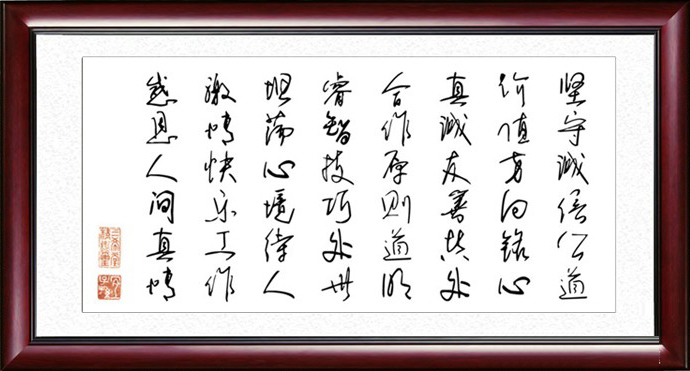 坚守诚信公道
价值方向铭心
真诚友善共处
合作原则道明
睿智技巧处世
坦荡心境待人
激情快乐工作
感恩人间真情